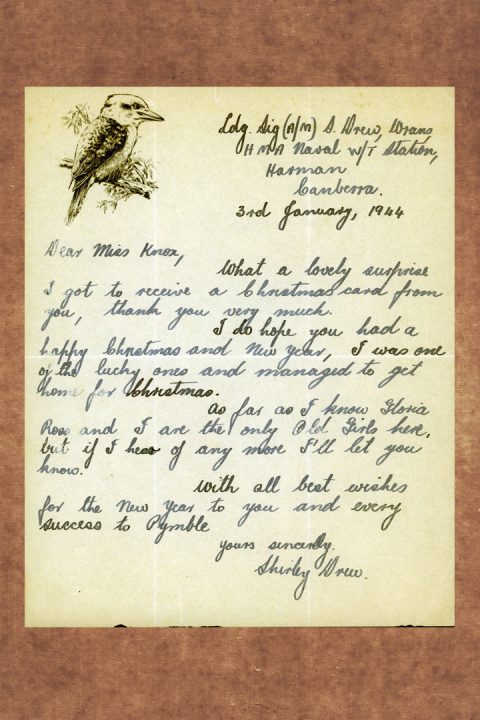 Ldg. Sig (A/M) S. Drew, Wrans,
H M A Naval W/T Station,
Harman
Canberra.
3rd January, 1944
Dear Miss Knox,
What a lovely surprise
I got to receive a Christmas card from
you, thank you very much.
I do hope you had a
happy Christmas and New Year, I was one
of the lucky ones and managed to get
home for Christmas.
As far as I know Gloria
Ross and I are the only Old Girls here,
but if I hear of any more I'll let you
know.
With all best wishes
for the New Year to you and every
success to Pymble
yours sincerely.
Shirley Drew.